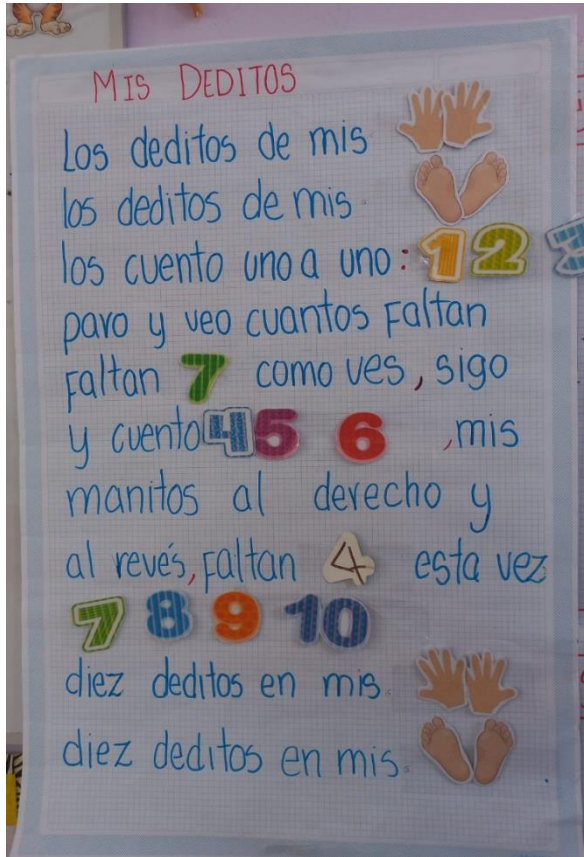 MIS DEDITOS
Los deditos de mis
los deditos de mis
los cuento uno a uno: 1 2 3
paro y veo cuantos Faltan
Faltan 7 como ves, sigo
y cuento 4 5 6 , mis
manitos al derecho y
al revés, Faltan 4 esta vez
7 8 9 10
diez deditos en mis.
diez deditos en mis.